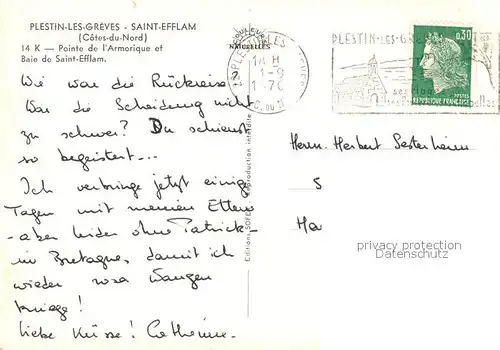 PLESTIN-LES-GRÈVES - SAINT-EFFLAM
(Côtes-du-Nord)
14 K — Pointe de l'Armorique et
Baie de Saint-Efflam.
NATURELLES
Wie war die Rückreise?
War die Scheidung nicht
zu schwer? Du schienst
so begeistert...
Ich verbringe jetzt einige
Tagen mit meinen Eltern
- aber leider ohne Patrick -
in Bretagne, damit ich
wieder rosa Wangen
kriege!
liebe Küsse! Catherine.
reproduction interdite
Editions
14 H
1-9
PLESTIN-LES-GR
0,30
POSTES
REPUBLIQUE FRANÇAISE
Herrn Herbert Sesterheim
S
Ha
privacy protection
Datenschutz